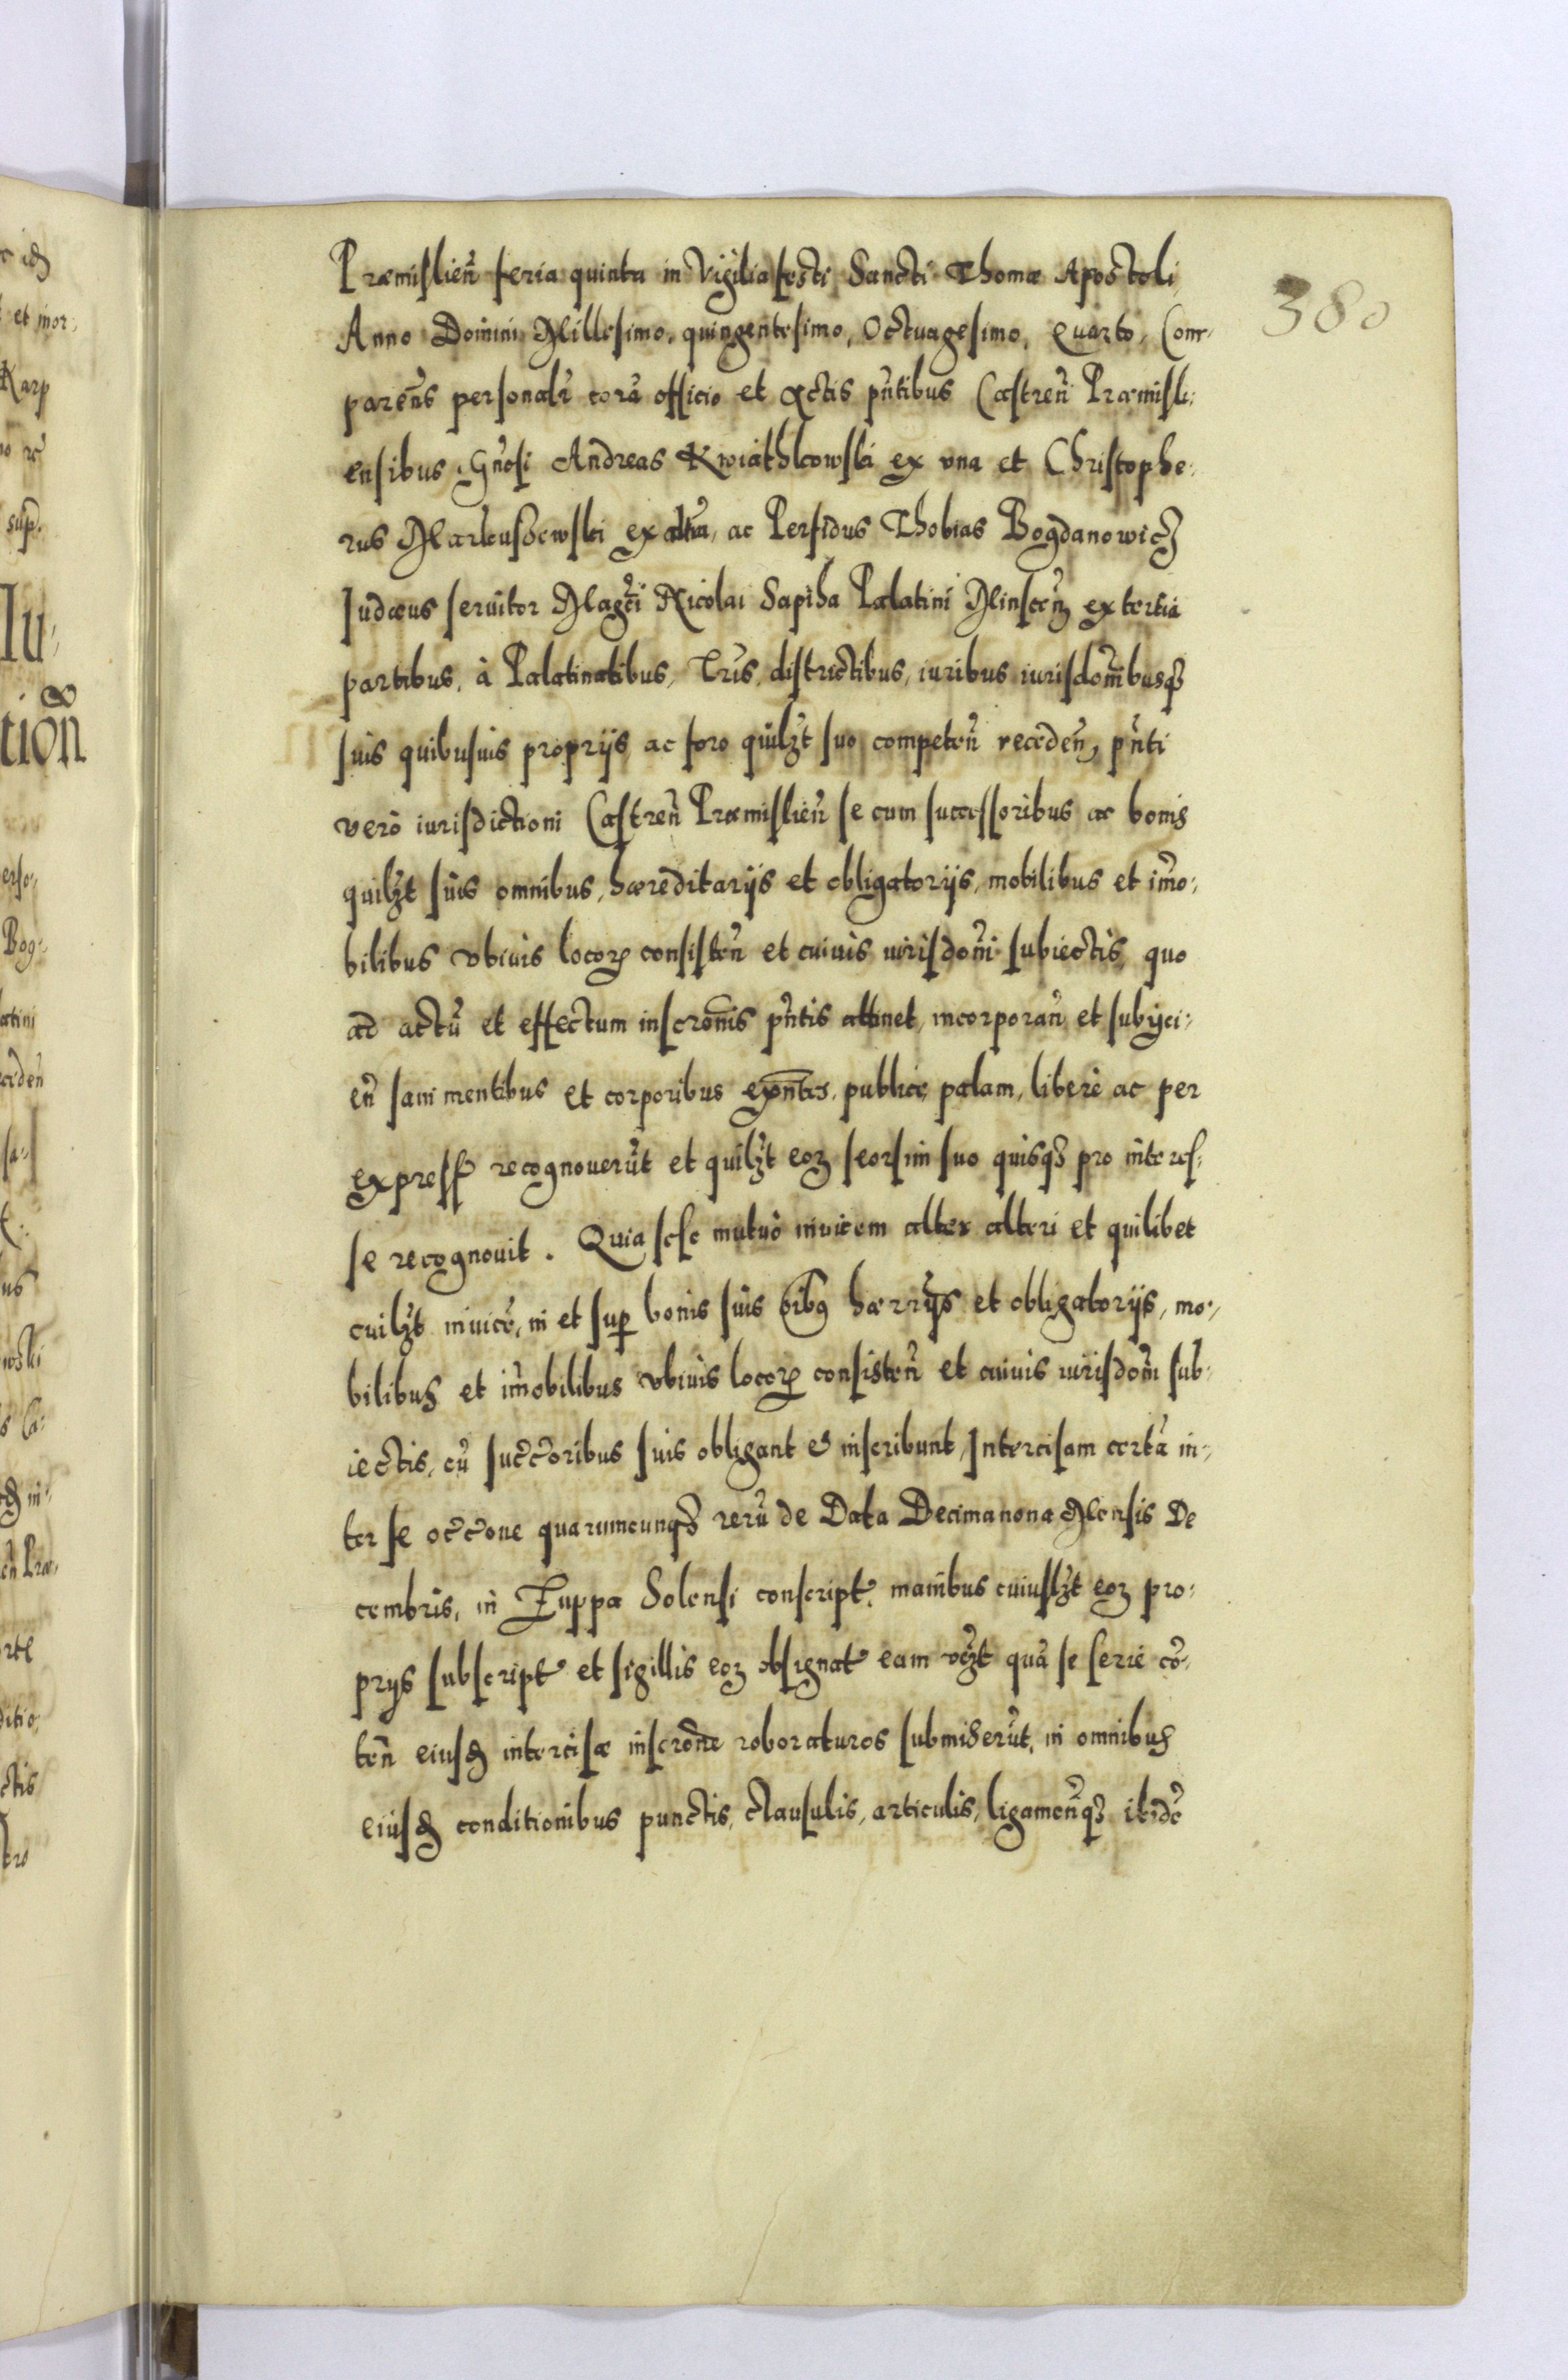 380
Præmislień feria quinta in Vigilia festi Sancti Thomæ Apostoli,
Anno Domini Millesimo, quingentesimo, Octuagesimo, Quarto, Com-
pareñs personalr̃ corã officio et Actis pñtibus Castreñ Præmisli-
ensibus Gñosi Andreas Kwiathkowski ex vna et Christophe-
rus Markuszewski ex altera, ac Perfidus Thobias Bogdanowicz
Iudæus seruitor Magc̃i Nicolai Sapiha Palatini Minsceñ ex tertia
partibus, à Palatinatibus, Tr̃is, districtibus, iuribus iurisdom̃ibusq3
suis quibusuis proprijs, ac foro quilz̃t suo competeñ receden̄, pñti
verò iurisdictioni Castreñ Præmislień se cum successoribus ac bonis
quilz̃t suis omnibus, hæreditarijs et obligatorijs, mobilibus et im̃o-
bilibus vbiuis locor̃ consisteñ et cuiuis iurisdoñi subiectis, quo
ad actũ et effectum inscroñis pñtis attinet, incorporañ et subijci-
eñ sani mentibus et corporibus exñtes, publice, palam, liberè ac per
express̃ recognouerũt et quilz̃t eoz seorsim suo quisq3 pro interes-
se recognouit. Quia sese mutuò inuicem alter alteri et quilibet
cuilz̃t inuicẽ, in et sup̱ bonis suis oĩbq hærrijs et obligatorijs, mo-
bilibus et im̃obilibus vbiuis locor̃ consisteñ et cuiuis iurisdoñi sub-
iectis, cũ succ̃oribus suis obligant & inscribunt, Intercisam certã in-
ter se occ̃one quarumcunq3 rerũ de Data Decimanona Mensis De
cembris, in Zuppa Solensi conscript̃, manibus cuiuslz̃t eoz pro-
prijs subscript̃ et sigillis eoz obsignat̃ eam vz̃t quã se serie cõ-
teñ eiusd̃ intercisæ inscroñe roboraturos submiserũt, in omnibus
eiusd̃ conditionibus punctis, clausulis, articulis, ligameñq3 ibidẽ